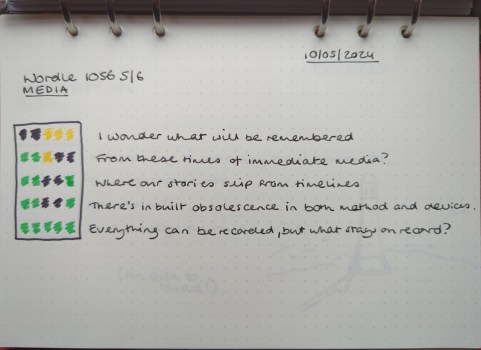 10/05/2024
Wordle 1056 5/6
MEDIA
I wonder what will be remembered
From these times of immediate media?
Where our stories slip from timelines
There's in built obsolescence in both method and devices.
Everything can be recorded, but what stays on record?